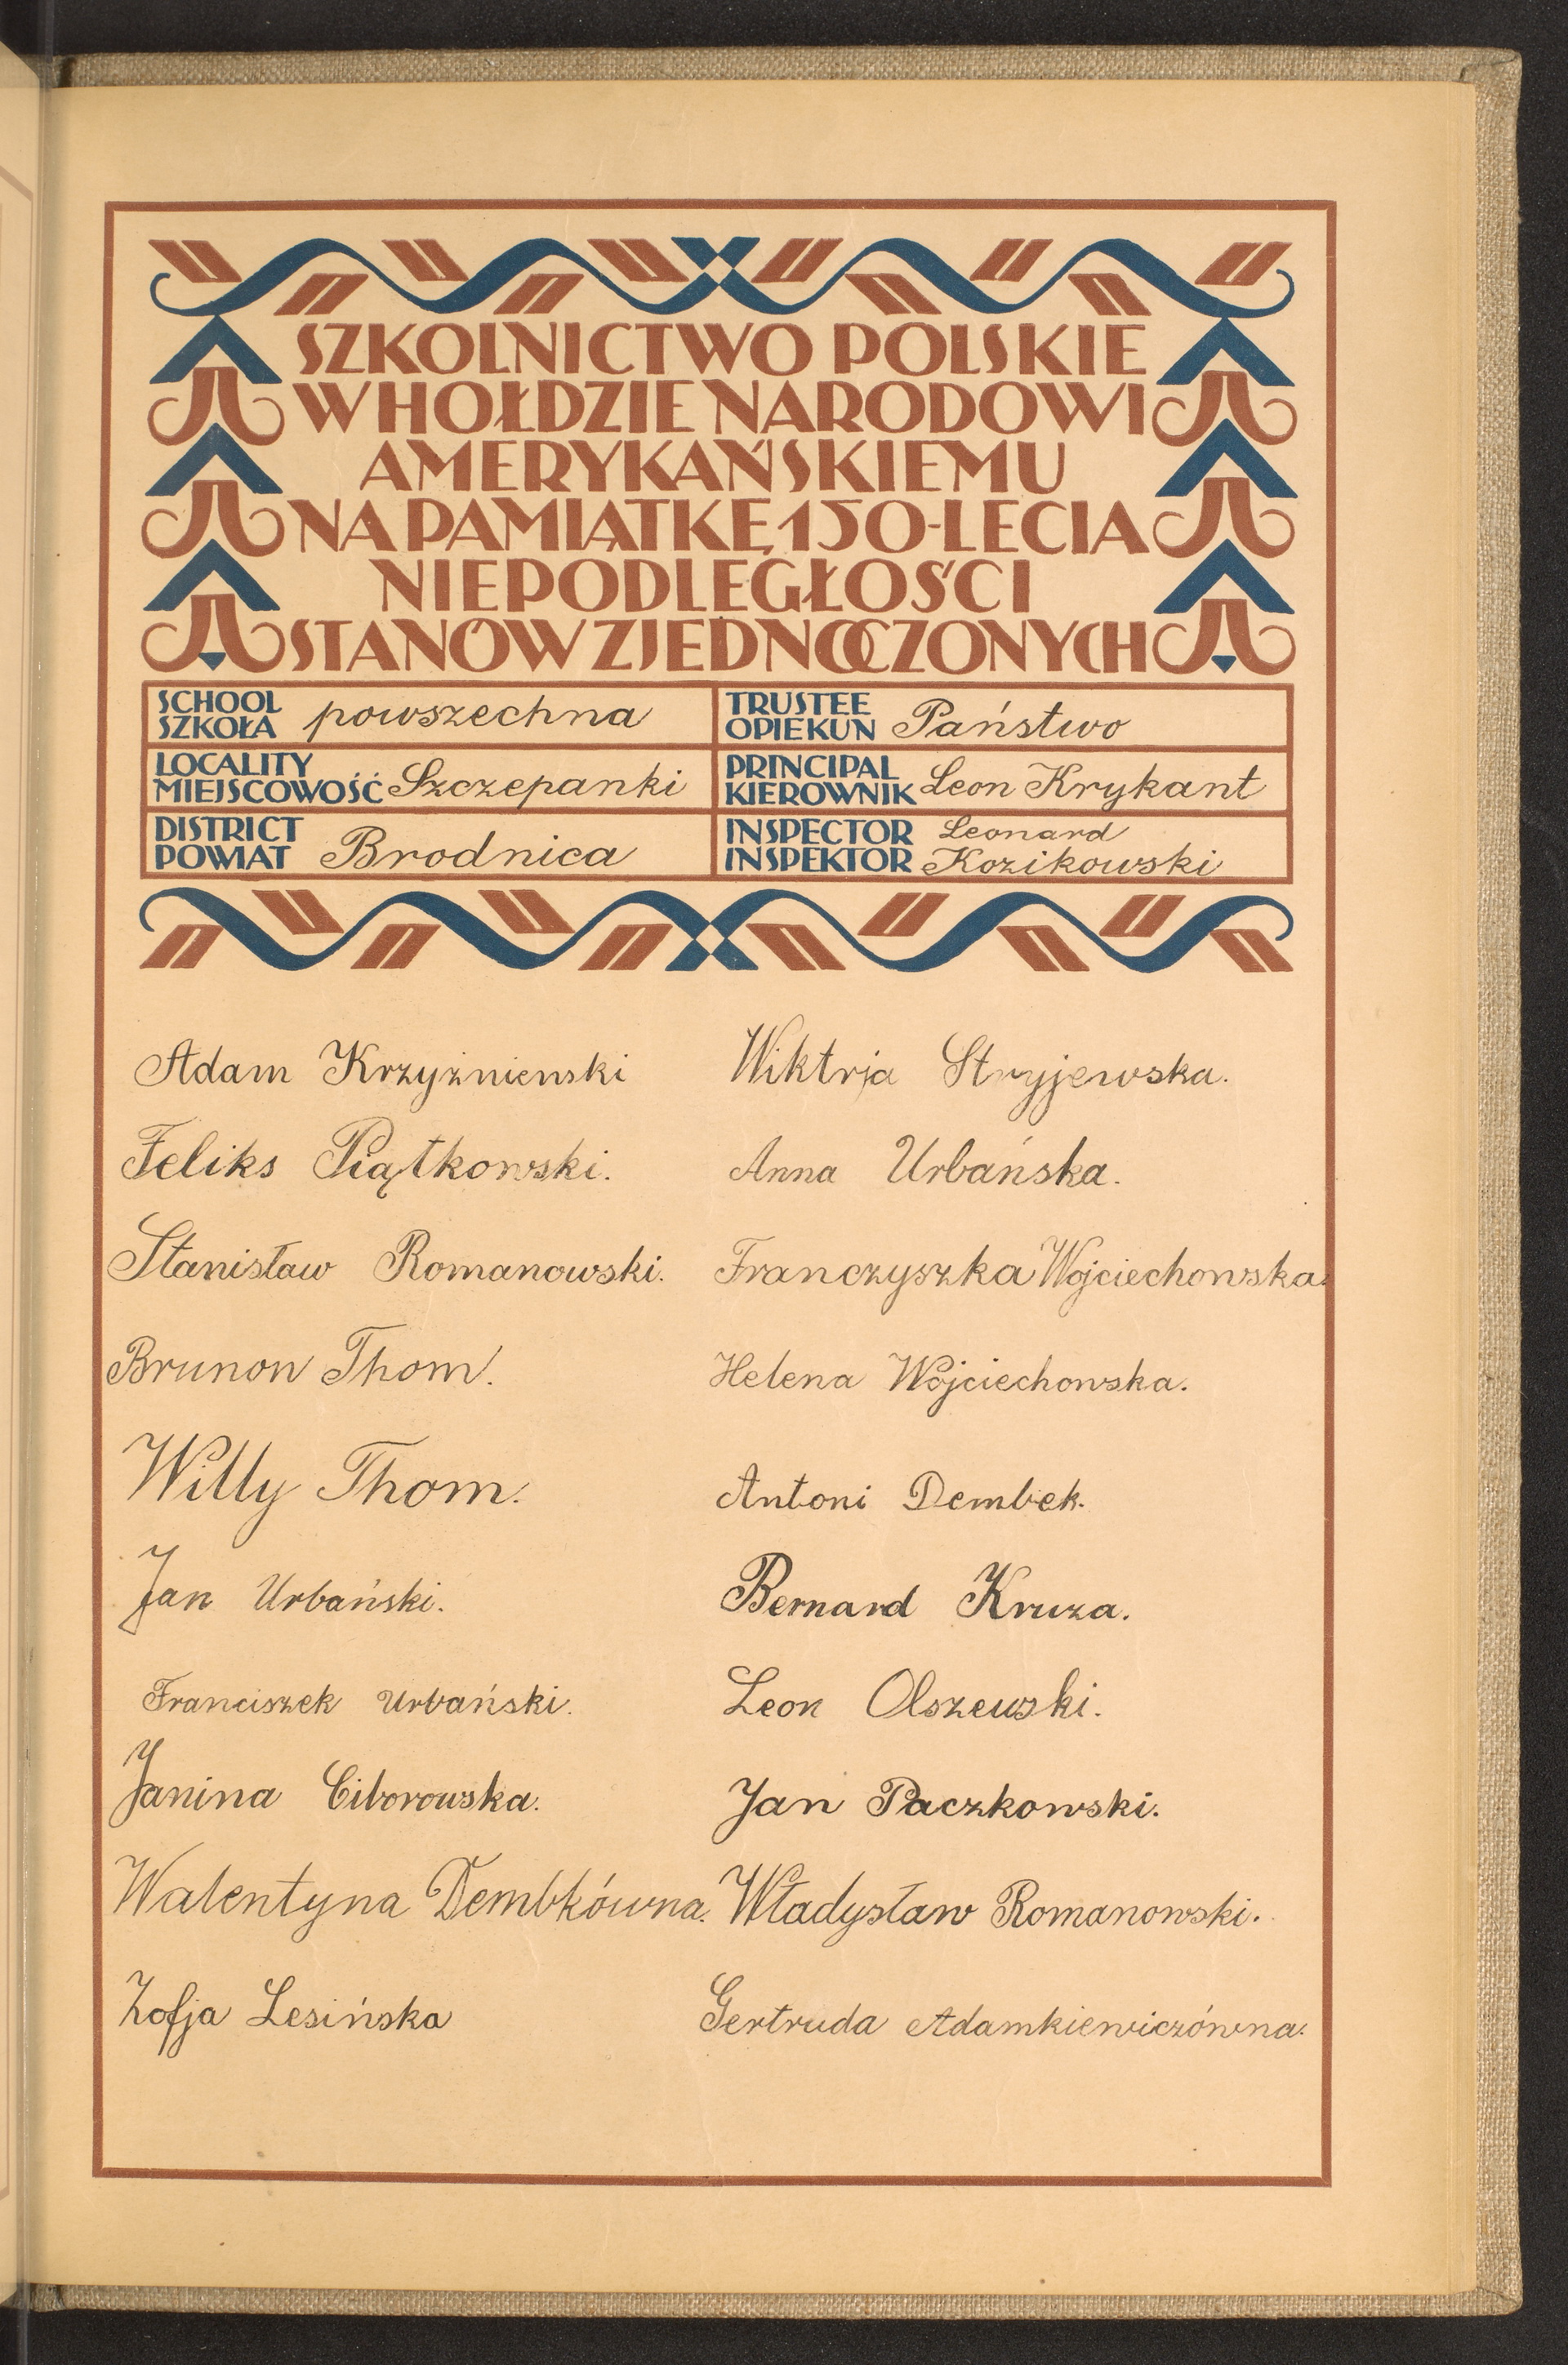 SZKOLNICTWO POLSKIE
W HOŁDZIE NARODOWI
AMERYKAŃSKIEMU
NA PAMIĄTKĘ 150-LECIA
NIEPODLEGŁOŚCI
STANÓW ZJEDNOCZONYCH
SCHOOL
SZKOŁA powszechna
TRUSTEE
OPIEKUN Państwo
LOCALITY
MIEJSCOWOŚĆ Szczepanki
PRINCIPAL
KIEROWNIK Leon Krykant
DISTRICT
POWIAT Brodnica
INSPECTOR Leonard
INSPEKTOR Kozikowski
Adam Krzyżnienski
Feliks Piątkowski.
Stanisław Romanowski.
Brunon Thom.
Willy Thom.
Jan Urbański.
Franciszek Urbański.
Janina Ciborowska.
Walentyna Dembkówna.
Zofja Lesińska
Wiktrja Stryjewska.
Anna Urbańska.
Franczyszka Wojciechowska.
Helena Wojciechowska.
Antoni Dembek.
Bernard Kruza.
Leon Olszewski.
Jan Paczkowski.
Władysław Romanowski.
Gertruda Adamkiewiczówna.